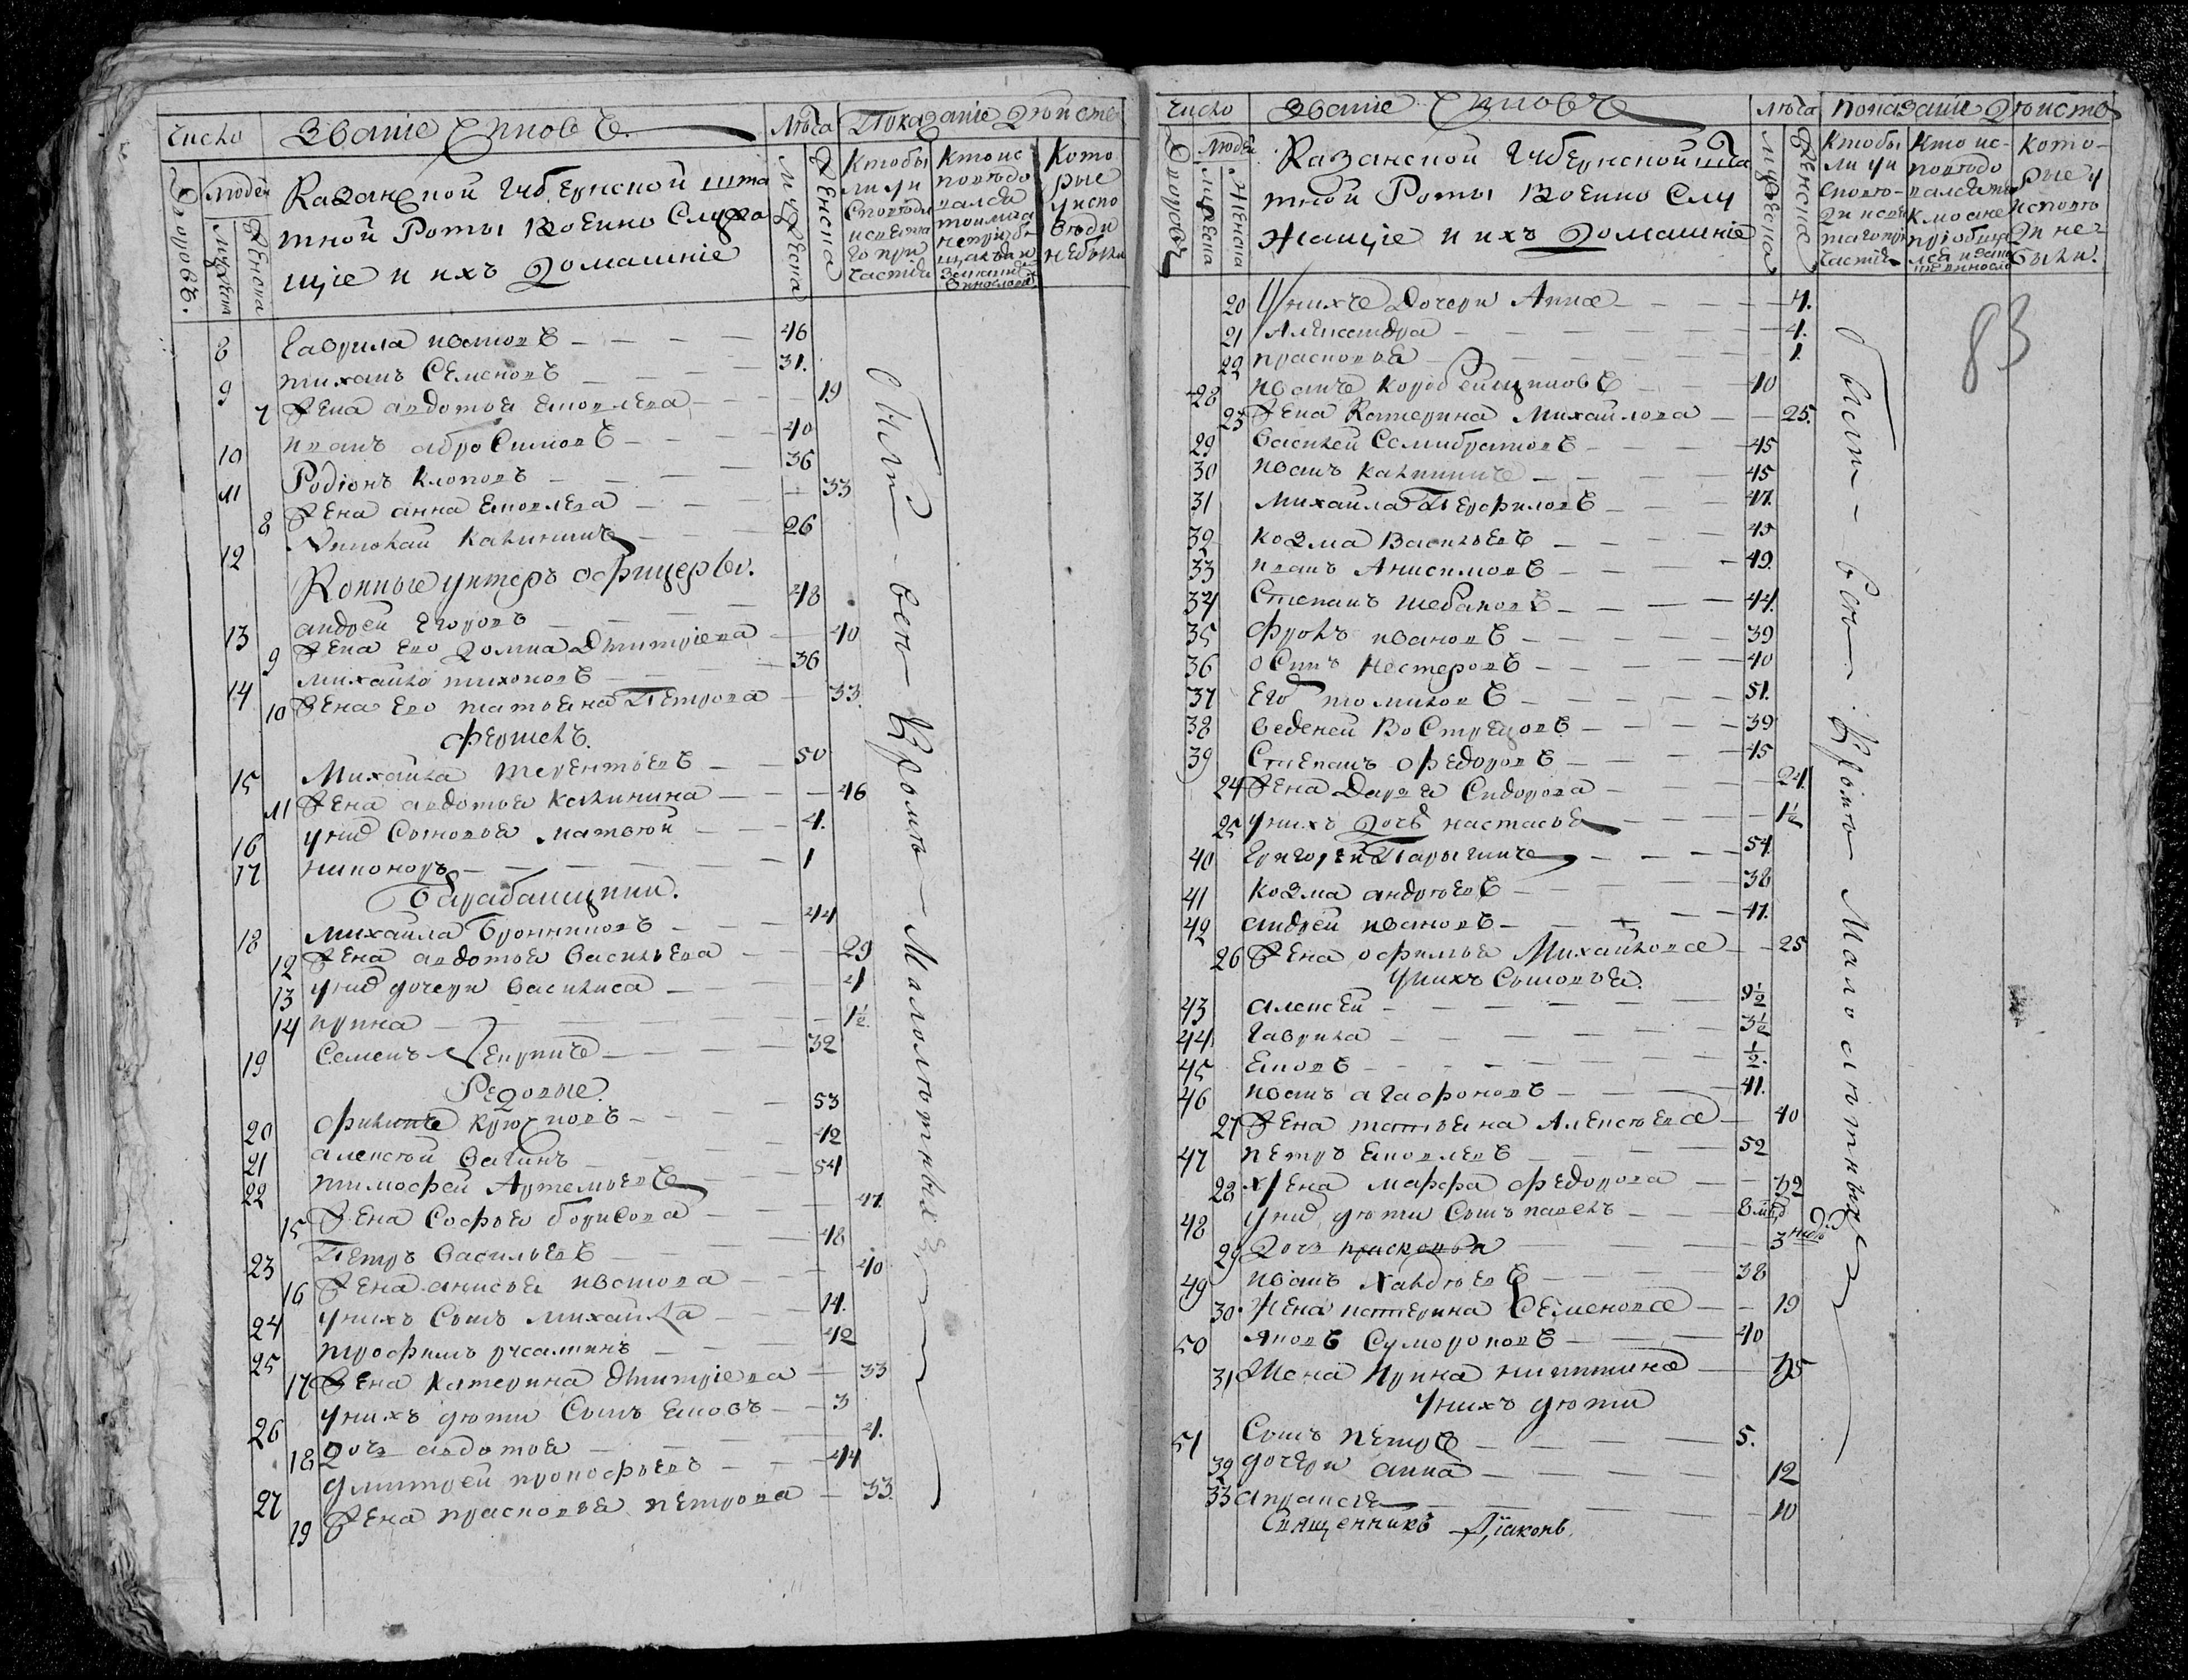 Число Званiе Чиновъ Люта Показанiе Дѣйств
Дворовъ.
Людей
Мужеска
Женска
Казанской Губернской шта
тной Роты Военно Служа
щiе и ихъ Домашнiе
Мужеска
Женска
Кто бы
ли у и
Кто ис
повѣдо
вался
Кото
рые
у испо
вѣди
небыли
8 Гаврила Ивановъ 46
9 Иванъ Семеновъ 31.
7 Жена Авдотья Яковлева 19
10 Иванъ Абросимовъ 40
11 Родiонъ Клоповъ 36
8 Жена Анна Яковлева 33
12 Николай Калининъ 26
Конные унтеръ офицеры.
13 Андрей Егоровъ 48
9 Жена Его Домна Дмитрiева 40
14 Михайло Тихоновъ 36
10 Жена Его Татьяна Петрова 33.
Фершелъ.
15 Михайла Терентьевъ 50
11 Жена Авдотья Калинина 46
16 у нид Сыновья Матвей 4.
17 Никоноръ 1
Барабанщики.
18 Михайла Бронниковъ 44
12 Жена Авдотья Васильева 29
13 у нид дочери Василиса 4
14 Ирина 1½.
19 Семенъ 32
Редовые.
20 Филипъ Крючковъ 53
21 Алексей Вагинъ 42
22 Тимофей Артемьевъ 54
15 Жена Софья Борисова 47.
23 Петръ Васильевъ 48
16 Жена Анисья Иванова 40
24 у нихъ Сынъ Михайла 14.
25 Трофимъ 42
17 Жена Катерина Дмитрiева 33
26 у нихъ дѣти Сынъ Яковъ 3
18 Дочь Авдотья 4.
27 Дмитрей Прокофьевъ 44
19 Жена Прасковья Петрова 33.
Были всѣ Кромѣ Малолѣтныхъ
Число Званiе Чиновъ Люта Показанiе Дѣйств
Дворовъ
Людей
Мужеска
Женска
Казанской Губернской шта
тной Роты Военно Слу
жащiе и ихъ Домашнiе
Мужеска
Женска
Кто бы
ли у и
Кто ис-
повѣдо
Кото-
рые у
исповѣ
ди не-
были.
83
20 У нихъ Дочери Анна 7.
21 Александра 4.
22 Прасковья 1.
28 Иванъ Коробейщиковъ 40
23 Жена Катерина Михайлова 25.
29 Василей Самибратовъ 45
30 Иванъ Калининъ 45
31 Михайла Перфиловъ 47.
32 Козма Васильевъ 45
33 Иванъ Анисимовъ 49.
34 Степанъ Шебановъ 44.
35 Фролъ Ивановъ 39
36 Осипъ Нестеровъ 40
37 Егоръ Томиловъ 51.
38 Веденей Вострецовъ 39
39 Степанъ Федоровъ 45
24 Жена Дарья Сидорова 24.
25 у нихъ Дочь Настасья 1½
40 Григорей Парыгинъ 54.
41 Козма Андреевъ 38
42 Андрей Ивановъ 47.
26 Жена Офимья Михайлова 25
У нихъ Сыновья.
43 Алексей 9½
44 Гаврила 3½
45 Яковъ ½.
46 Иванъ Агафоновъ 41.
27 Жена Татьяна Алексеева 40
47 Петръ Яковлевъ 52
28 Жена Марфа Федорова 42
48 у нид дѣти Сынъ Павелъ 8 мѣд
29 Дочь Прасковья 3 нидѣ
49 Иванъ Халдеевъ 38
30 Жена Катерина Семенова 19
50 Яковъ Сумороковъ 40
31 Жена Ирина Никитина 35
У нихъ дѣти
51 Сынъ Петръ 5.
32 дочери Анна 12
33 Апраксея 10
Священникъ Дiаконъ.
Были всѣ Кромѣ Малолѣтныхъ